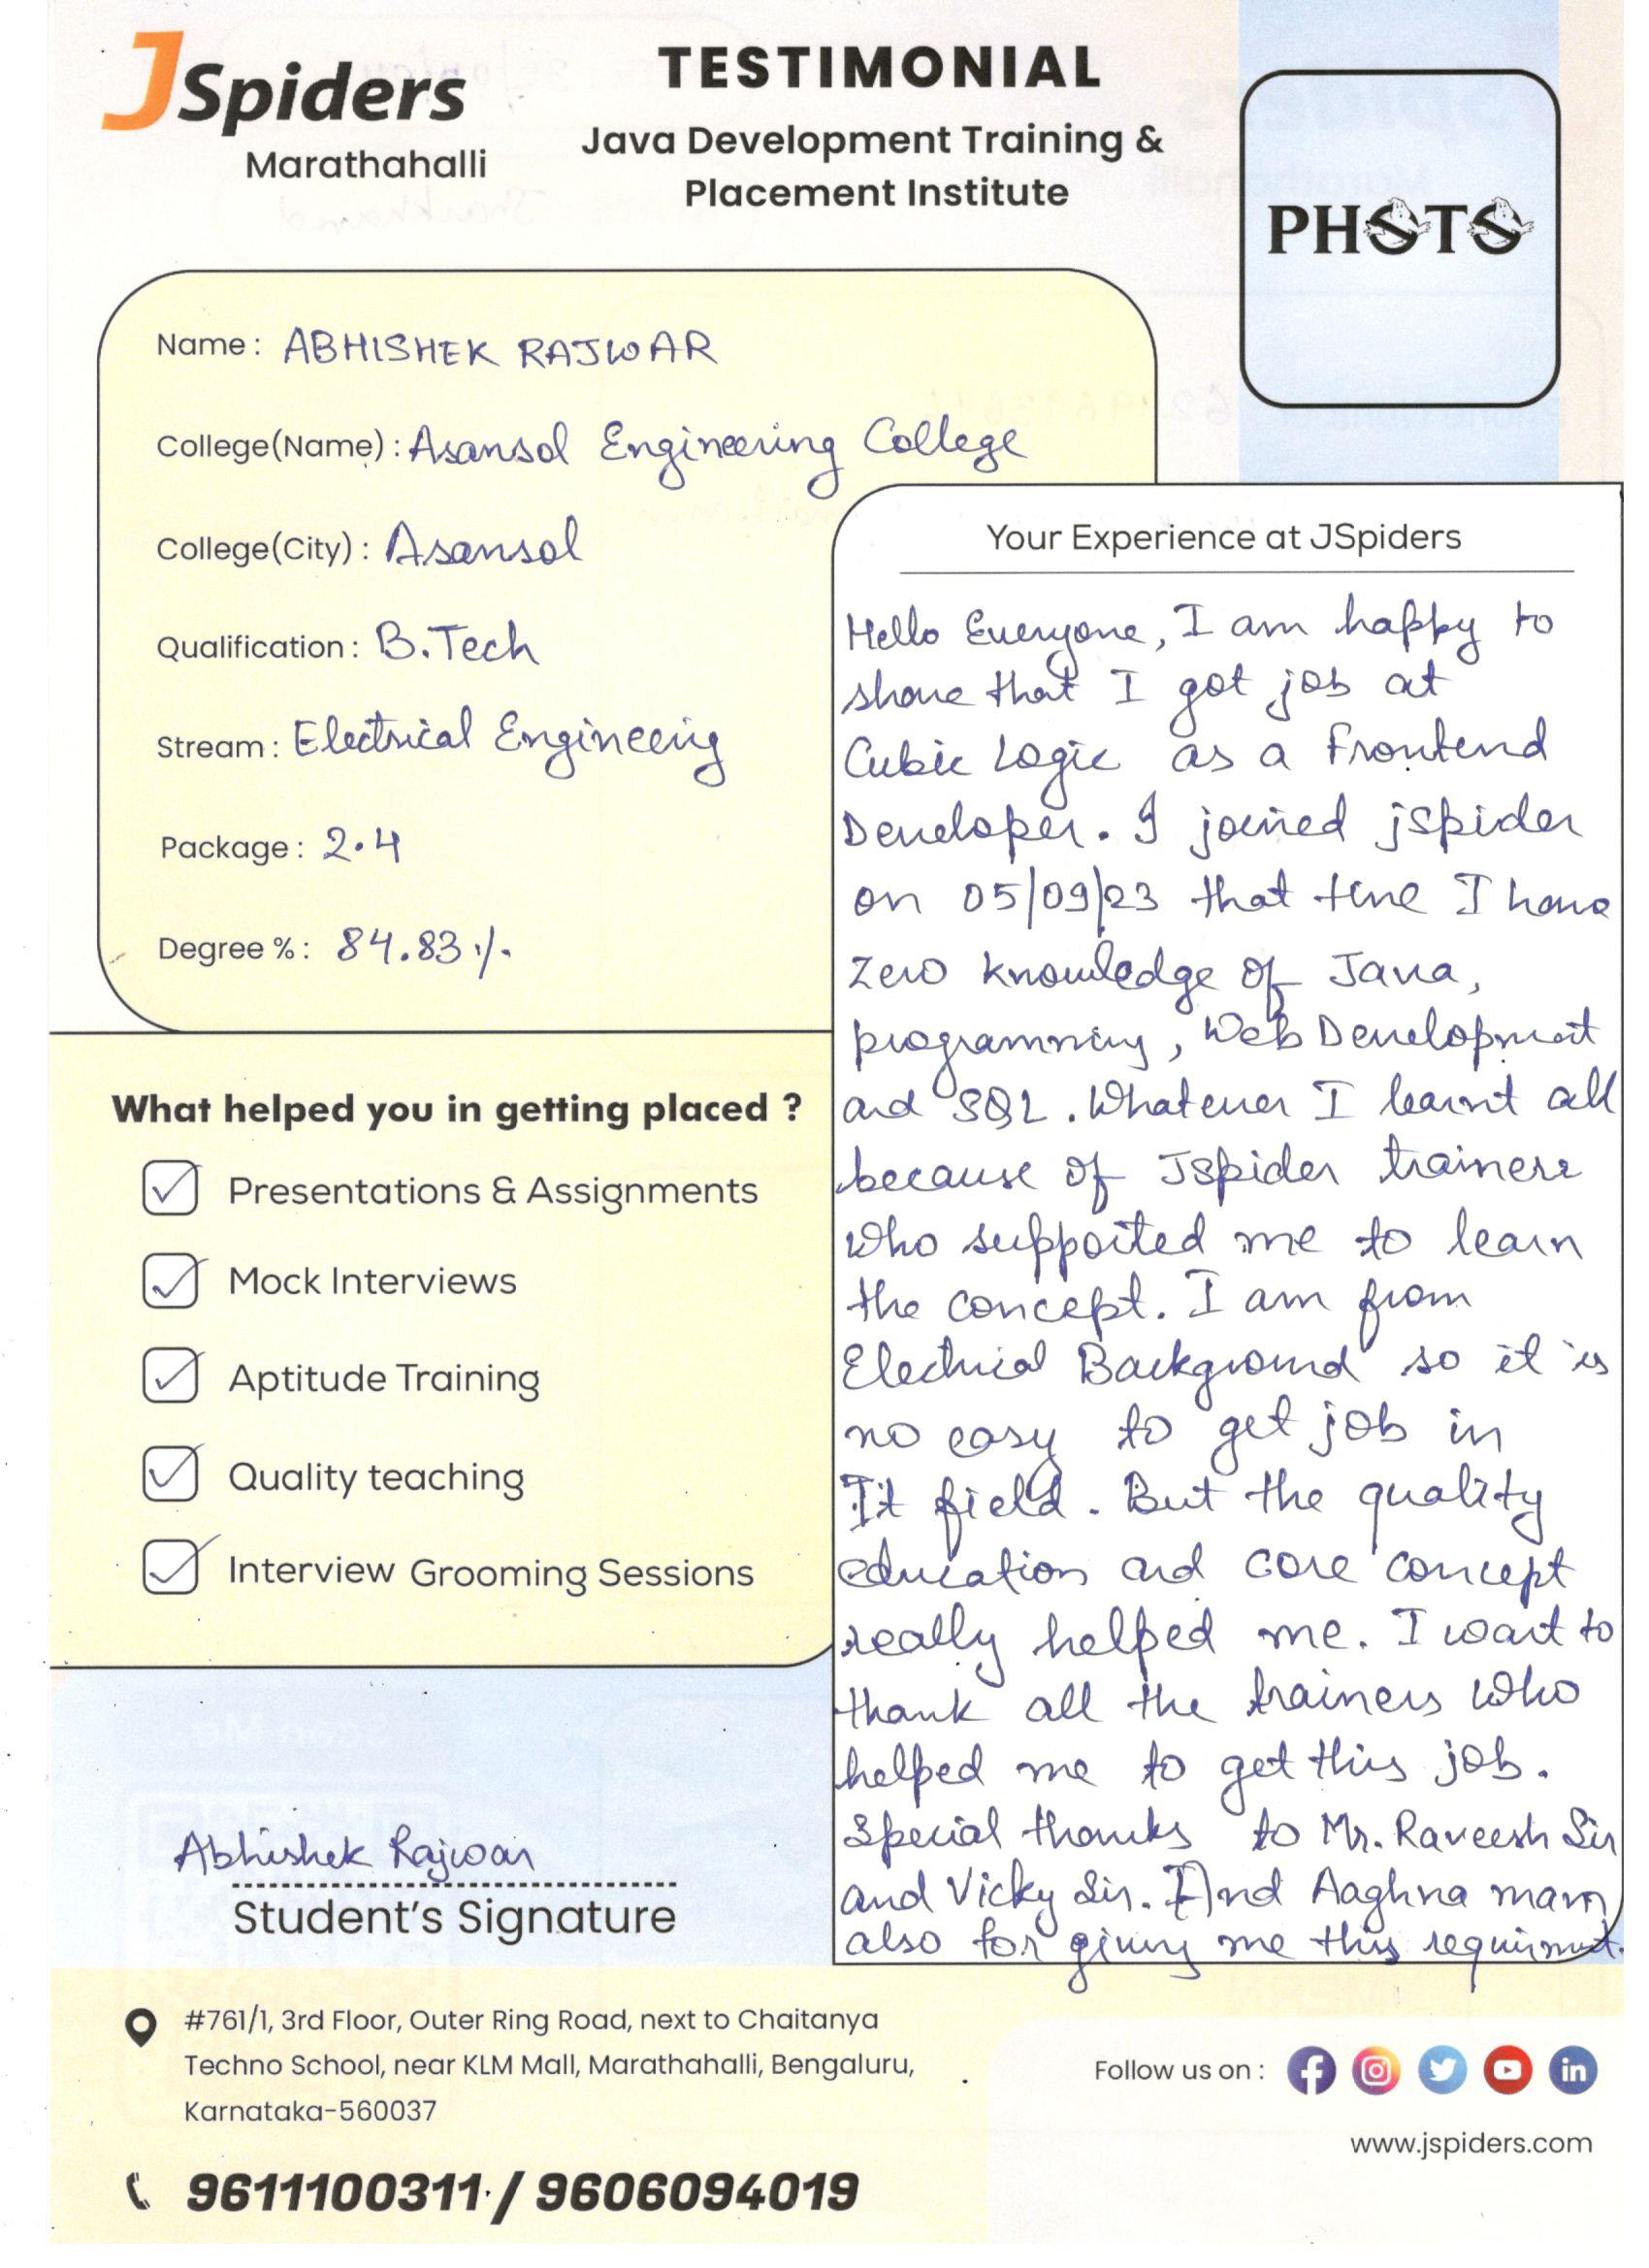 JSpiders
Marathahalli
TESTIMONIAL
Java Development Training &
Placement Institute
PHOTO
Name : ABHISHEK RAJWAR
College(Name) : Asansol Engineering College
College(City) : Asansol
Qualification : B.Tech
Stream : Electrical Engineerig
Package : 2.4
Degree % : 84.83 %
What helped you in getting placed ?
Presentations & Assignments
Mock Interviews
Aptitude Training
Quality teaching
Interview Grooming Sessions
Abhishek Rajwar
Student's Signature
Your Experience at JSpiders
Hello Everyone, I am happy to
share that I got job at
Cubic Logic as a Frontend
Developer. I joined jspider
on 05/09/23 that time I have
zero knowledge of Java,
programming, Web Development
and SQL. Whatever I learnt all
because of Jspider trainers
who supported me to learn
the concept. I am from
Electrical Background so it is
no easy to get job in
It field. But the quality
education and core concept
really helped me. I want to
thank all the trainers who
helped me to get this job.
Special thanks to Mr. Raveesh Sir
and Vicky Sir. And Aaghna mam
also for giving me this requirment.
#761/1, 3rd Floor, Outer Ring Road, next to Chaitanya
Techno School, near KLM Mall, Marathahalli, Bengaluru,
Karnataka-560037
9611100311 / 9606094019
Follow us on :
www.jspiders.com